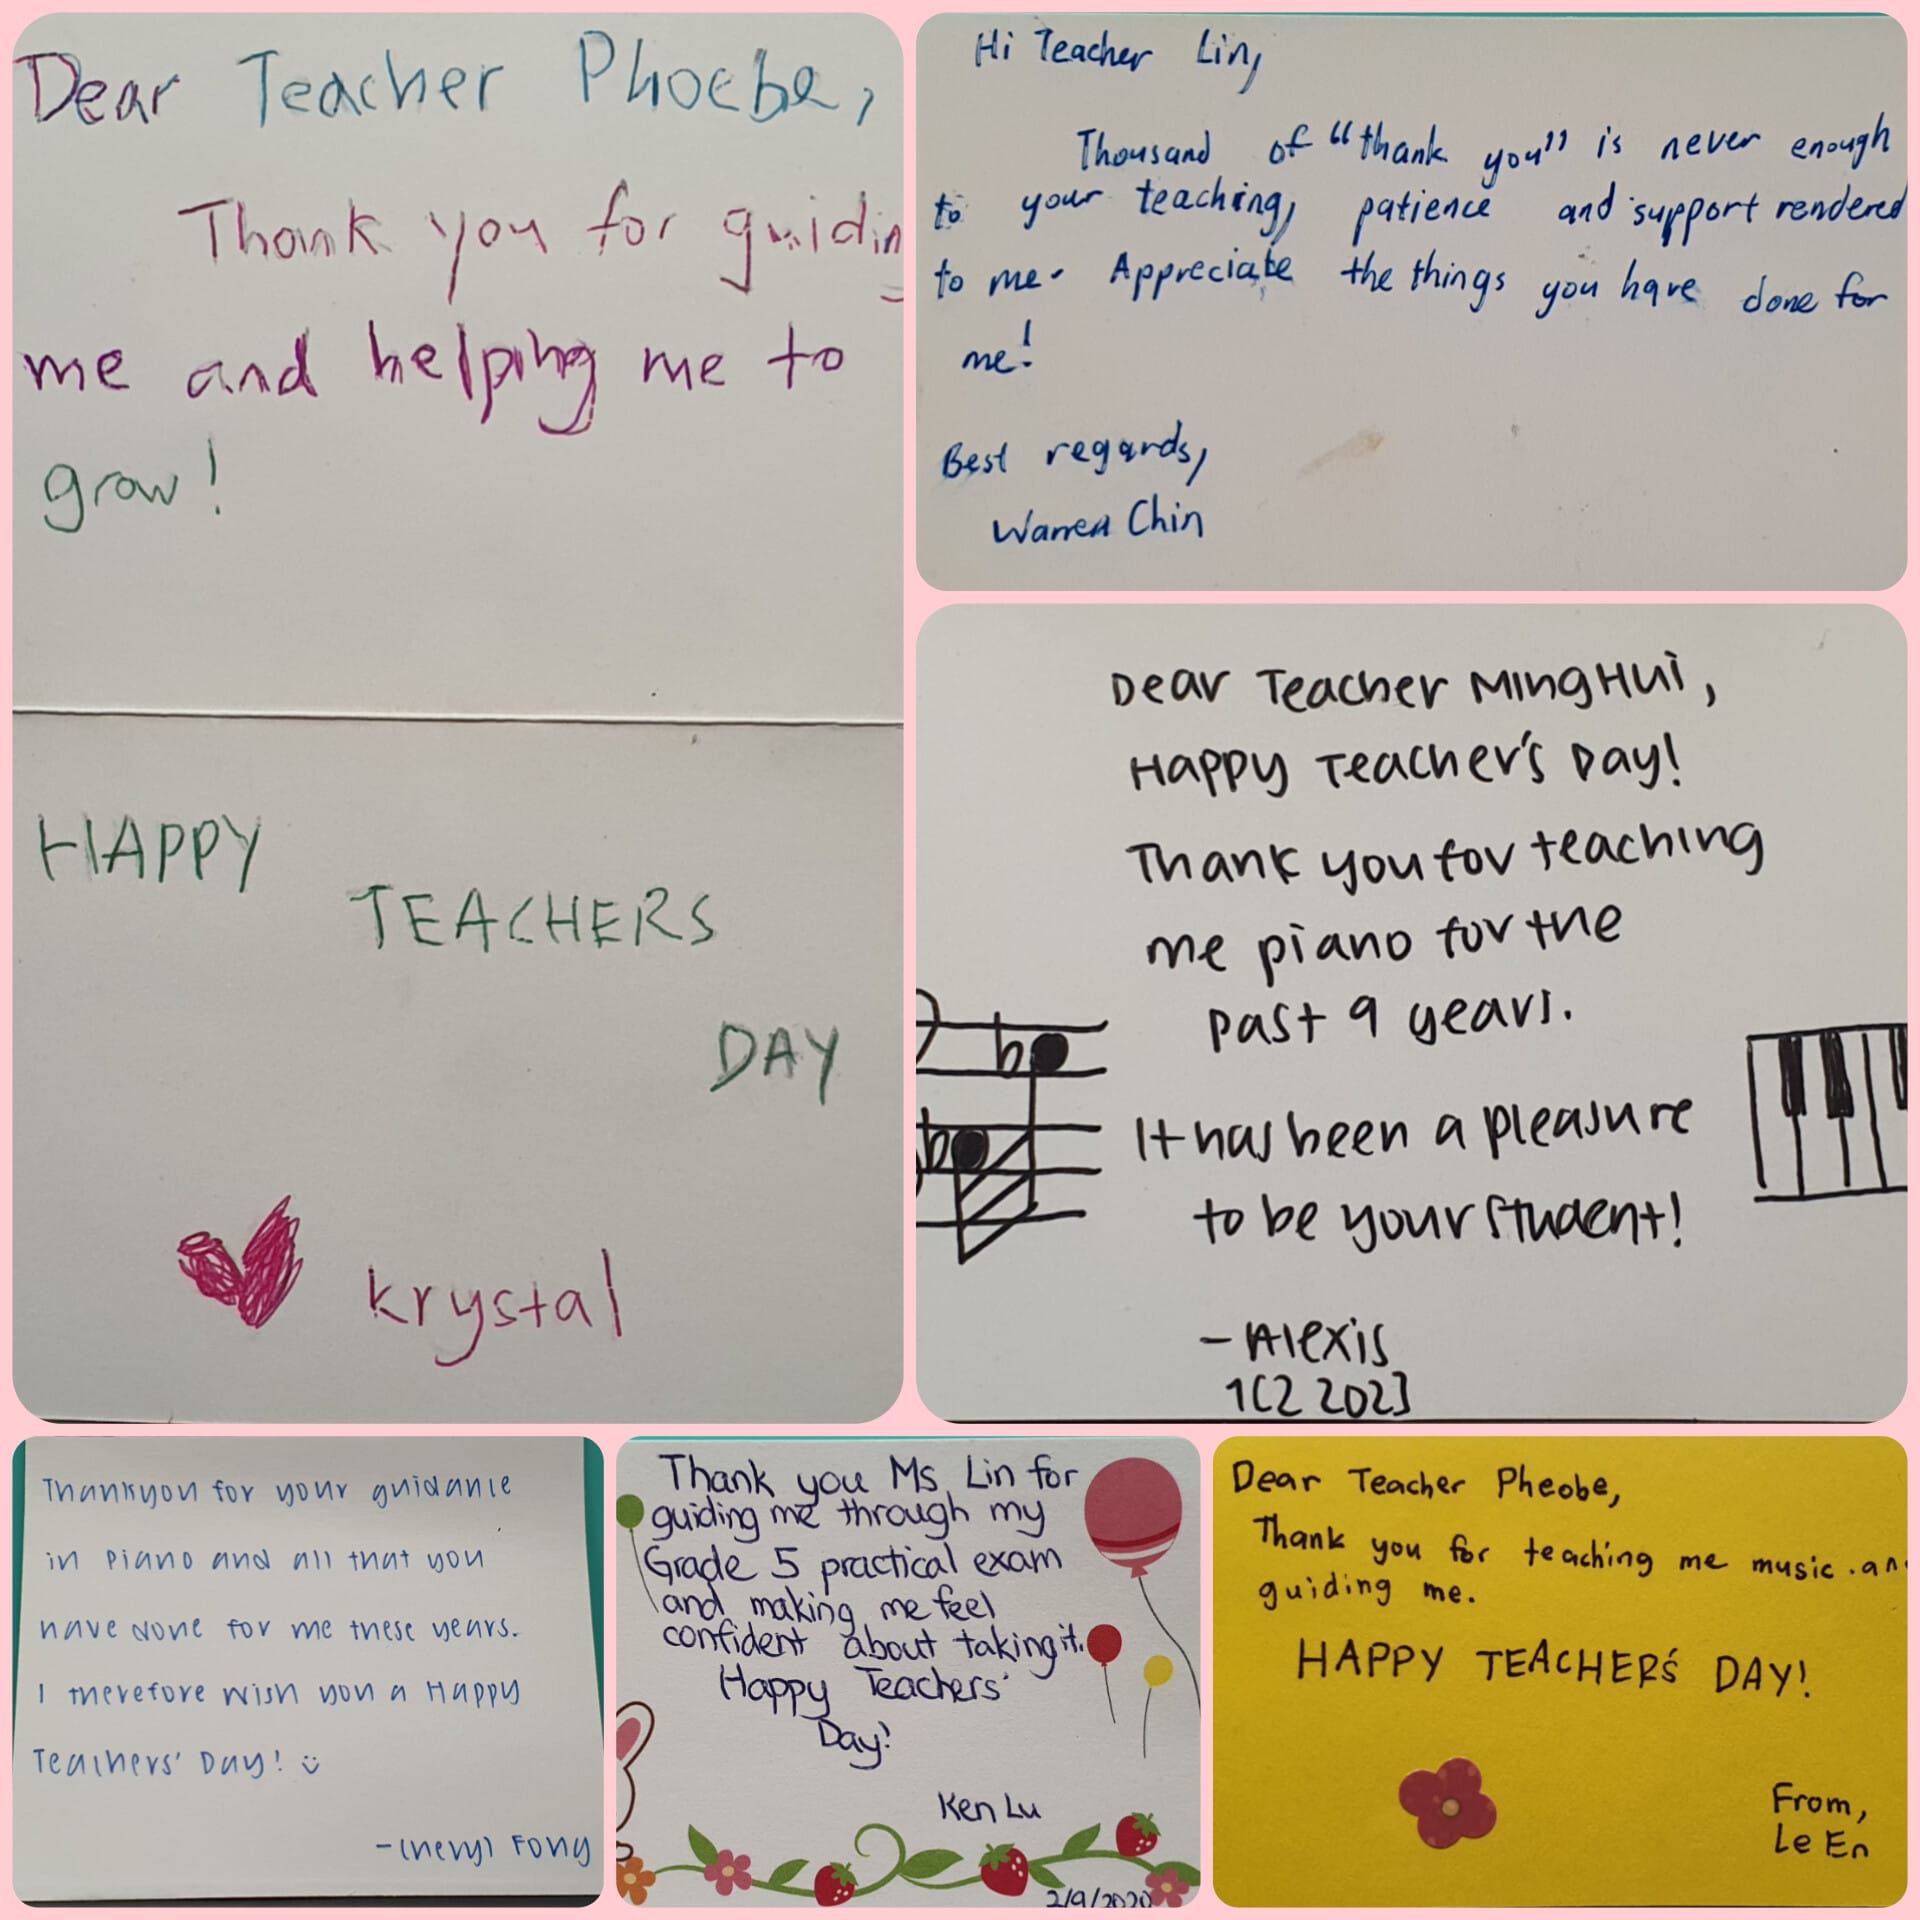 Dear Teacher Phoebe,
Thank you for guidin
me and helping me to
grow!
HAPPY
TEACHERS
DAY
krystal
Hi Teacher Lin,
Thousand of "thank you" is never enough
to your teaching, patience and support rendered
to me. Appreciate the things you have done for
me!
Best regards,
Warren Chin
Dear Teacher MingHui,
Happy Teacher's Day!
Thank you for teaching
me piano for the
past 9 years.
It has been a pleasure
to be your student!
- Alexis
2023
Thankyou for your guidance
in piano and all that you
have done for me these years.
I therefore wish you a Happy
Teachers' Day! :)
- Cheryl Fong
Thank you Ms Lin for
guiding me through my
Grade 5 practical exam
and making me feel
confident about taking it.
Happy Teachers'
Day!
Ken Lu
2/9/2020
Dear Teacher Pheobe,
Thank you for teaching me music. an
guiding me.
HAPPY TEACHER'S DAY!
From,
Le En